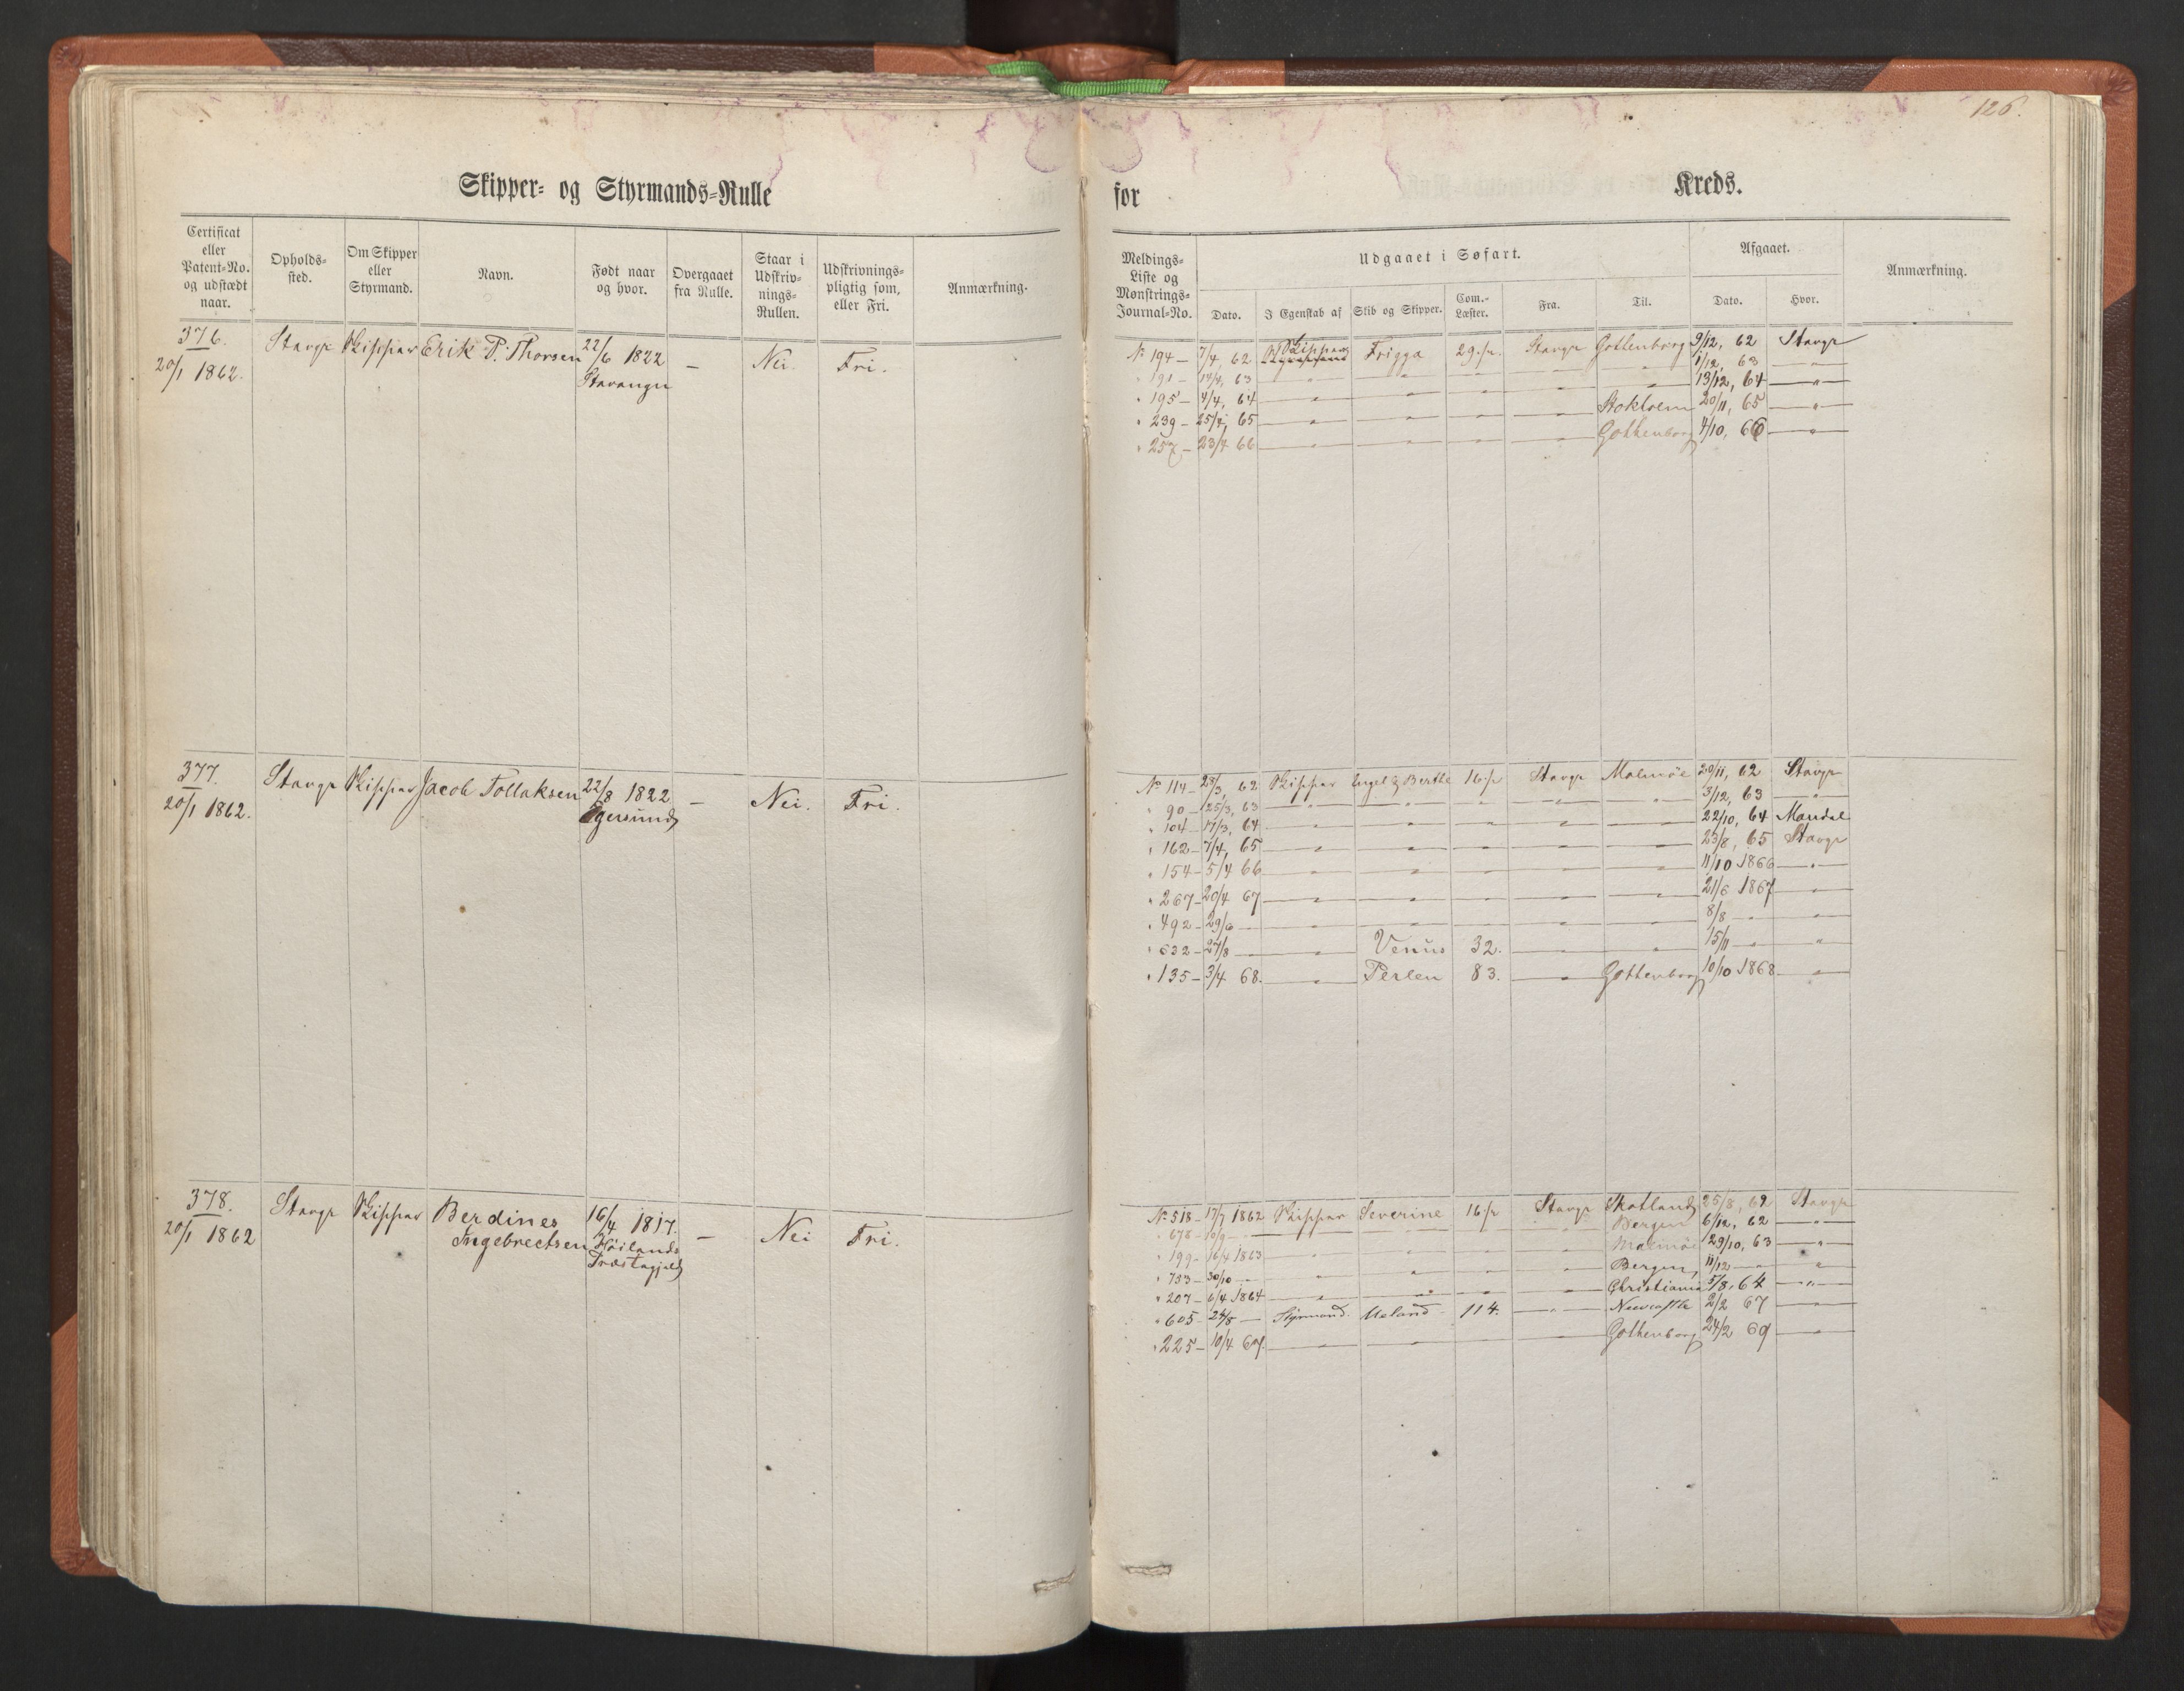 126.
Skipper- og Styrmands-Rulle for Kreds.
Certificat eller Patent-No. og udstædt naar.
Opholds-sted.
Om Skipper eller Styrmand.
Navn.
Født naar og hvor.
Overgaaet fra Rulle.
Staar i Udskriv-nings-Rullen.
Udskrivnings-pligtig som, eller Fri.
Anmærkning.
Meldings-Liste og Mønstrings-Journal-No.
Udgaaet i Søfart.
Dato.
I Egenskab af
Skib og Skipper.
Com.-Læster.
Fra.
Til.
Afgaaet.
Dato.
Hvor.
Anmærkning.
376. Stavgr Skipper Erik P. Thorsen 22/6 1822 — Nei. Fri.
20/1 1862. Stavanger
No 194 — 7/4, 62 Skipper Frigga 29 Stavgr Gottenborg 9/12, 62 Stavgr
" 191 — 63 — " — " — " — " — " 1/12, 63 — " —
" 195 — 4/4, 64 — " — " — " — " — " 13/12, 64 — " —
" 239 — 25/4, 65 — " — " — " — " Stokholm 20/11, 65 — " —
" 257 — 23/4 66 — " — " — " — " Gothenborg 4/10, 66 — " —
377. Stavgr Skipper Jacob Tollaksen 22/8 1822 — Nei. Fri.
20/1 1862. Egersund
No 114 — 28/3, 62 Skipper Engel & Berthe 16 Stavgr Malmöe 20/11, 62 Stavgr
" 90 — 25/3, 63 — " — " — " — " — " 3/12, 63 — " —
" 104 — 17/3, 64 — " — " — " — " — " 22/10, 64 Mandal
" 162 — 7/4, 65 — " — " — " — " — " 23/8, 65 Stavgr
" 154 — 5/4 66 — " — " — " — " — " 11/10 1866 — " —
" 267 — 20/4 67 — " — " — " — " — " 21/6 1867 — " —
" 492 — 29/6 — — " — " — " — " — " 8/8 — " — " —
" 632 — 27/8 — — " — Venus 32. — " — " 15/11 — " — " —
" 135 — 3/4 68. — " — Perlen 83. — " Gottenborg 10/10 1868 — " —
378. Stavgr Skipper Berdines 16/4 1817. — Nei Fri.
20/1 1862 Ingebrectsen Höilands
Præstegjeld
No 518 — 17/7 1862 Skipper Severine 16 Stavgr Skotland 25/8, 62 Stavgr
" 678 — 10/9 — — — — — Bergen 6/12, 62 — " —
" 199 — 16/4 1863 — " — " — " — " Malmöe 29/10, 63 — " —
" 733 — 30/10 — — " — " — " — " Bergen, 11/12 — " — " —
" 207 — 6/4 1864 — " — " — " — " Christiania 5/8, 64 — " —
" 605 — 24/8 — Styrmand. Ueland 114. — " — Newcastle 2/2 67 — " —
" 225 — 10/4 67. — " — " — " — " Gothenborg 24/2 69 — " —